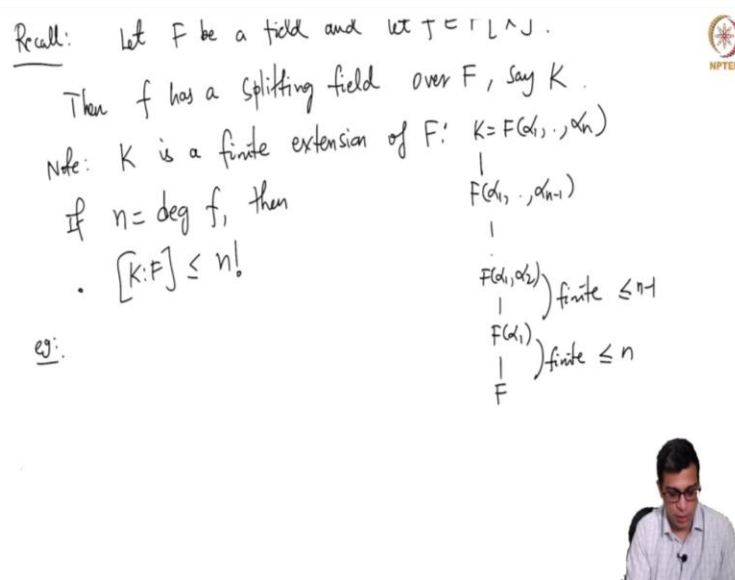 Recall: Let F be a field and let f ∈ F[X].
Then f has a splitting field over F, say K.
Note: K is a finite extension of F: K = F(α₁, ., αn)
|
F(α₁, ., αn-1)
If n = deg f, then
|
. [K:F] ≤ n!
F(α₁,α₂)
|
) finite ≤ n-1
eg:.
F(α₁)
|
) finite ≤ n
F
NPTEL